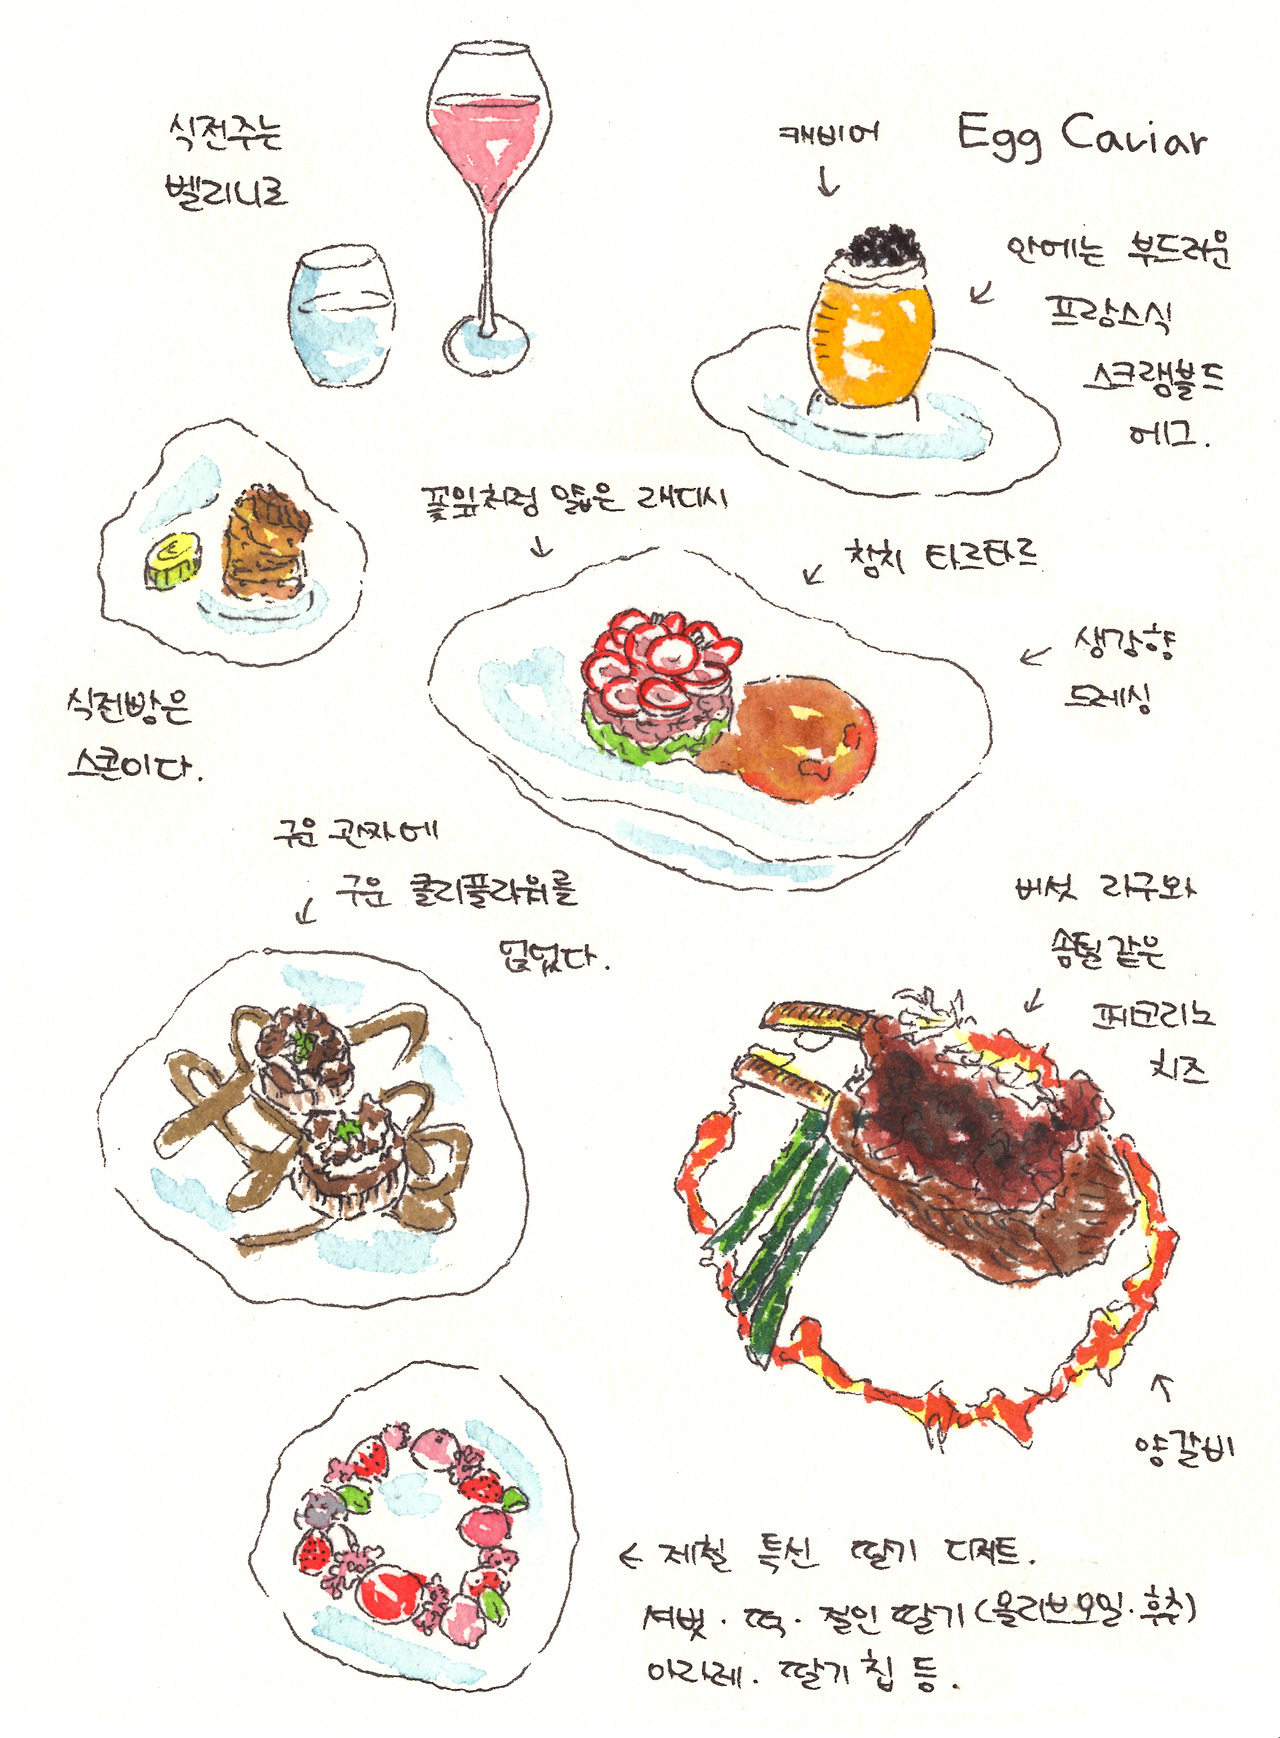 식전주는
벨리니로
캐비어
Egg Caviar
안에는 부드러운
프랑스식
스크램블드
에그.
꽃잎처럼 얇은 래디시
참치 타르타르
생강향
드레싱
식전빵은
스콘이다.
구운 관자에
구운 콜리플라워를
얹었다.
버섯 라구와
솜털 같은
페코리노
치즈
양갈비
제철 특선 딸기 디저트.
셔벗 · 떡 · 절인 딸기 (올리브오일 · 후추)
아라레 · 딸기 칩 등.